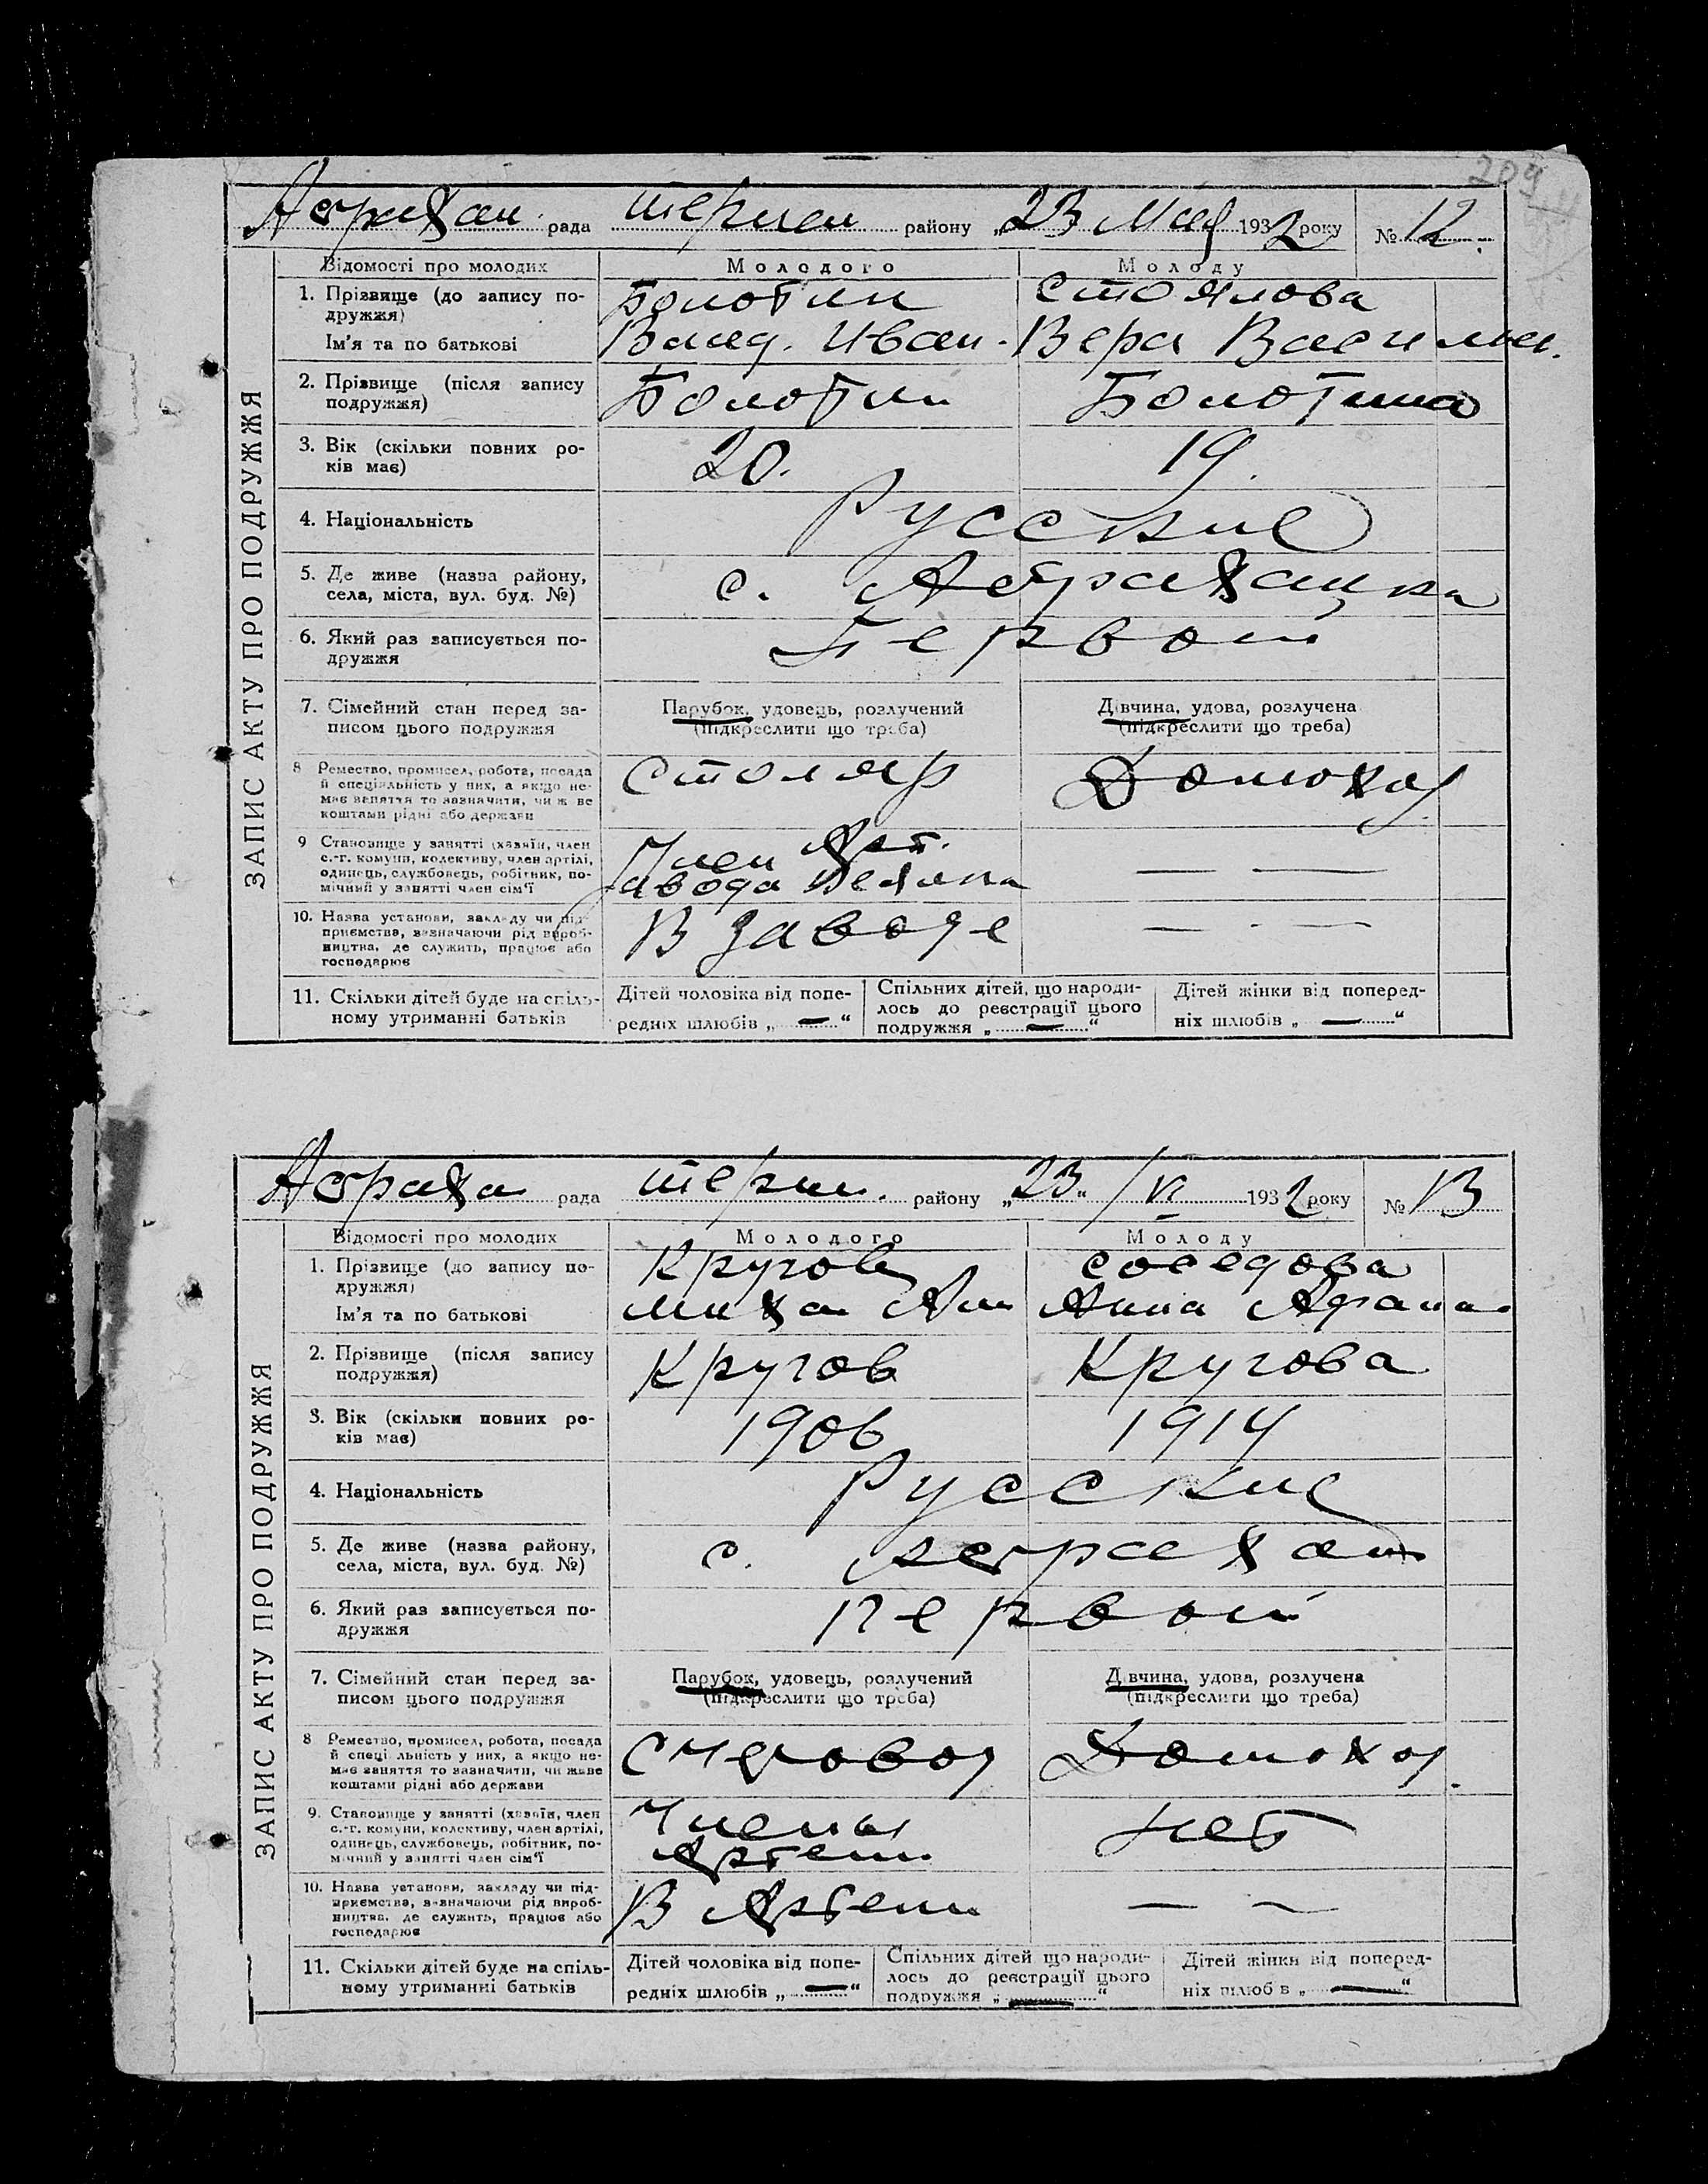 209
Астрахан. рада терпен району „23 Мая 1932 року № 12.
ЗАПИС АКТУ ПРО ПОДРУЖЖЯ
Відомості про молодих Молодого Молоду
1. Прізвище (до запису по- Болотин Стоялова
дружжя)
Ім'я та по батькові Влад. Иван. Вера Васильи.
2. Прізвище (після запису Болотин Болотина
подружжя)
3. Вік (скільки повних ро- 20. 19.
ків має)
4. Національність Русские
5. Де живе (назва району, с. Астраханка
села, міста, вул. буд. №)
6. Який раз записується по- Первой
дружжя
7. Сімейний стан перед за- Парубок, удовець, розлучений Дівчина, удова, розлучена
писом цього подружжя (підкреслити що треба) (підкреслити що треба)
8 Ремество, промисел, робота, посада Столяр Домохоз
й спеціяльність у них, а якщо не-
має заняття то зазначити, чи ж ве
коштами рідні або держави
9 Становище у занятті (хазяїн, член Член Арт.
с.-г. комуни, колективу, член артілі, завода
одинець, службовець, робітник, по- — —
мічний у занятті член сім'ї
10. Назва установи, закладу чи під- В заводе — - —
приємства, зазначаючи рід вироб-
ництва, де служить, працює або
господарює
11. Скільки дітей буде на спіль- Дітей чоловіка від попе- Спільних дітей, що народи- Дітей жінки від поперед-
ному утриманні батьків редніх шлюбів „ — “ лось до реєстрації цього ніх шлюбів „ — “
подружжя „ — “
Астраха рада терпи. району „23„ /VI 1932 року № 13
ЗАПИС АКТУ ПРО ПОДРУЖЖЯ
Відомості про молодих Молодого Молоду
1. Прізвище (до запису по- Кругов Соседова
дружжя)
Ім'я та по батькові Михаи Ан Анна Афанас
2. Прізвище (після запису Кругов Кругова
подружжя)
3. Вік (скільки повних ро- 1906 1914
ків має)
4. Національність Русские
5. Де живе (назва району, с. Астрахан
села, міста, вул. буд. №)
6. Який раз записується по- Первой
дружжя
7. Сімейний стан перед за- Парубок, удовець, розлучений Дівчина, удова, розлучена
писом цього подружжя (підкреслити що треба) (підкреслити що треба)
8 Ремество, промисел, робота, посада Счетовод Домохоз.
й спеці льність у них, а якщо не-
має заняття то зазначити, чи живе
коштами рідні або держави
9. Становище у занятті (хазяїн, член Члены нет
с.-г. комуни, колективу, член артілі, Артели
одинець, службовець, робітник, по-
мічний у занятті член сім'ї
10. Назва установи, закладу чи під- В Артели — ~
приємства, зазначаючи рід вироб-
ництва, де служить, працює або
господарює
11. Скільки дітей буде на спіль- Дітей чоловіка від попе- Спільних дітей що народи- Дітей жінки від поперед-
ному утриманні батьків редніх шлюбів „ — “ лось до реєстрації цього ніх шлюб в „ — “
подружжя „ — “